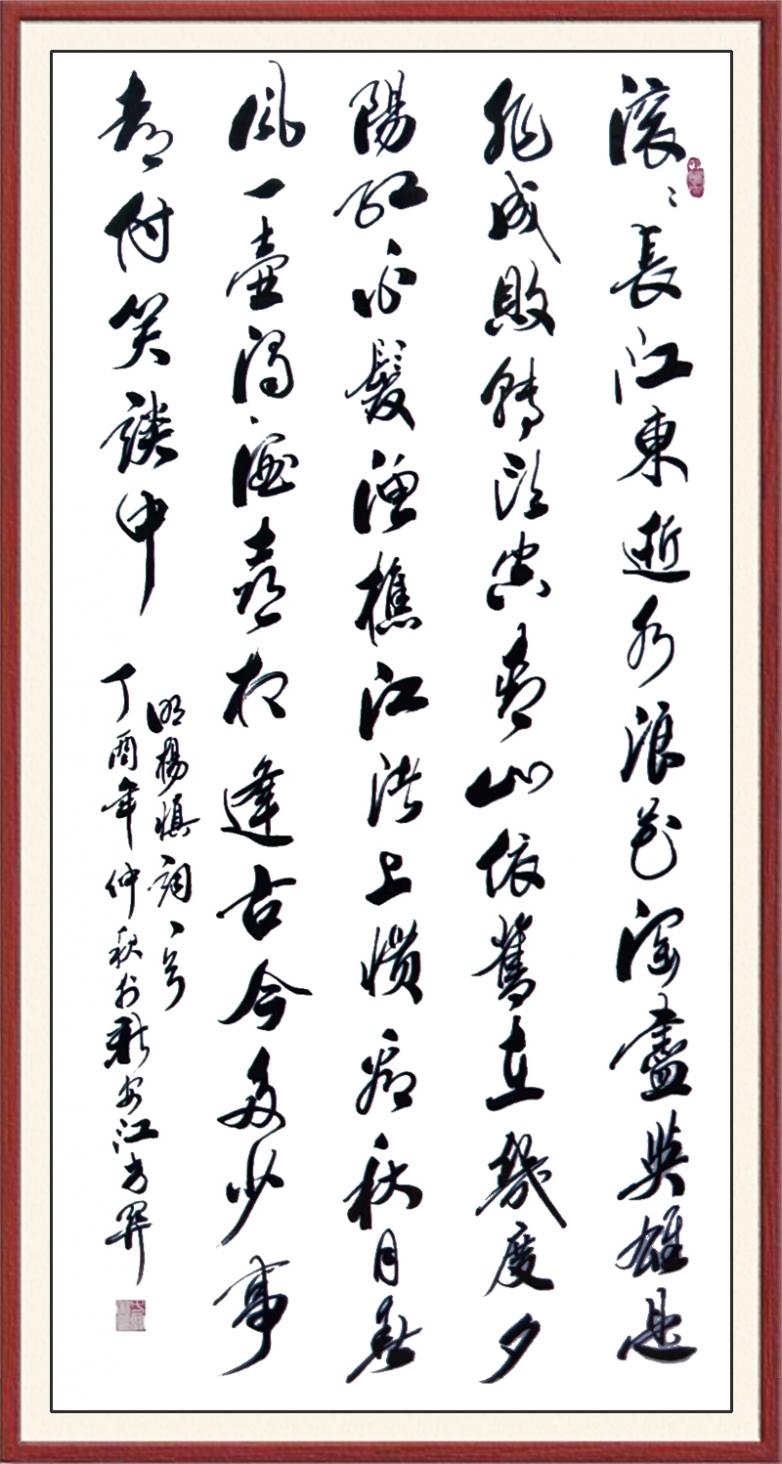 滚〻長江東逝水浪花淘盡英雄是
非成敗轉頭空青山依舊在幾度夕
陽紅白髮漁樵江渚上慣看秋月春
風一壺濁酒喜相逢古今多少事
都付笑談中
明楊慎詞一首
丁酉年仲秋於新安江方